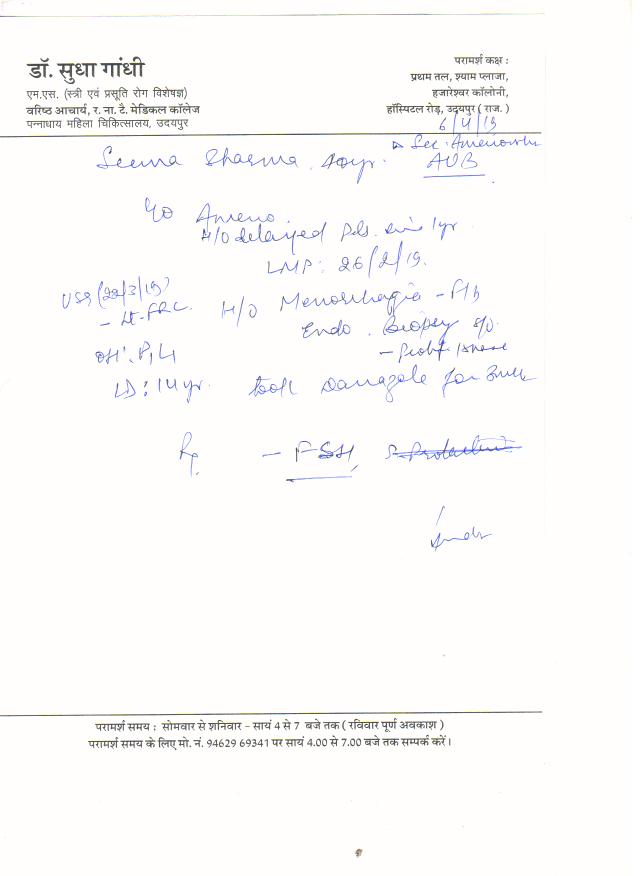 डॉ. सुधा गांधी
एम.एस. (स्त्री एवं प्रसूति रोग विशेषज्ञ)
वरिष्ठ आचार्य, र. ना. टै. मेडिकल कॉलेज
पन्नाधाय महिला चिकित्सालय, उदयपुर
परामर्श कक्ष :
प्रथम तल, श्याम प्लाजा,
हजारेश्वर कॉलोनी,
हॉस्पिटल रोड़, उदयपुर ( राज. )
6/4/19
Sec. Amenorrh
AUB
Seema Sharma. 40yr.
Ameno.
H/O delayed Pds. since 1yr
LMP: 26/2/19.
USG (22/3/19)
H/O Menorrhagia -
Endo. Biopsy
OH: P1L1
LD: 14yr. took Danazole for
Rx - FSH, S. Prolactin
परामर्श समय : सोमवार से शनिवार - सायं 4 से 7 बजे तक ( रविवार पूर्ण अवकाश )
परामर्श समय के लिए मो. नं. 94629 69341 पर सायं 4.00 से 7.00 बजे तक सम्पर्क करें।